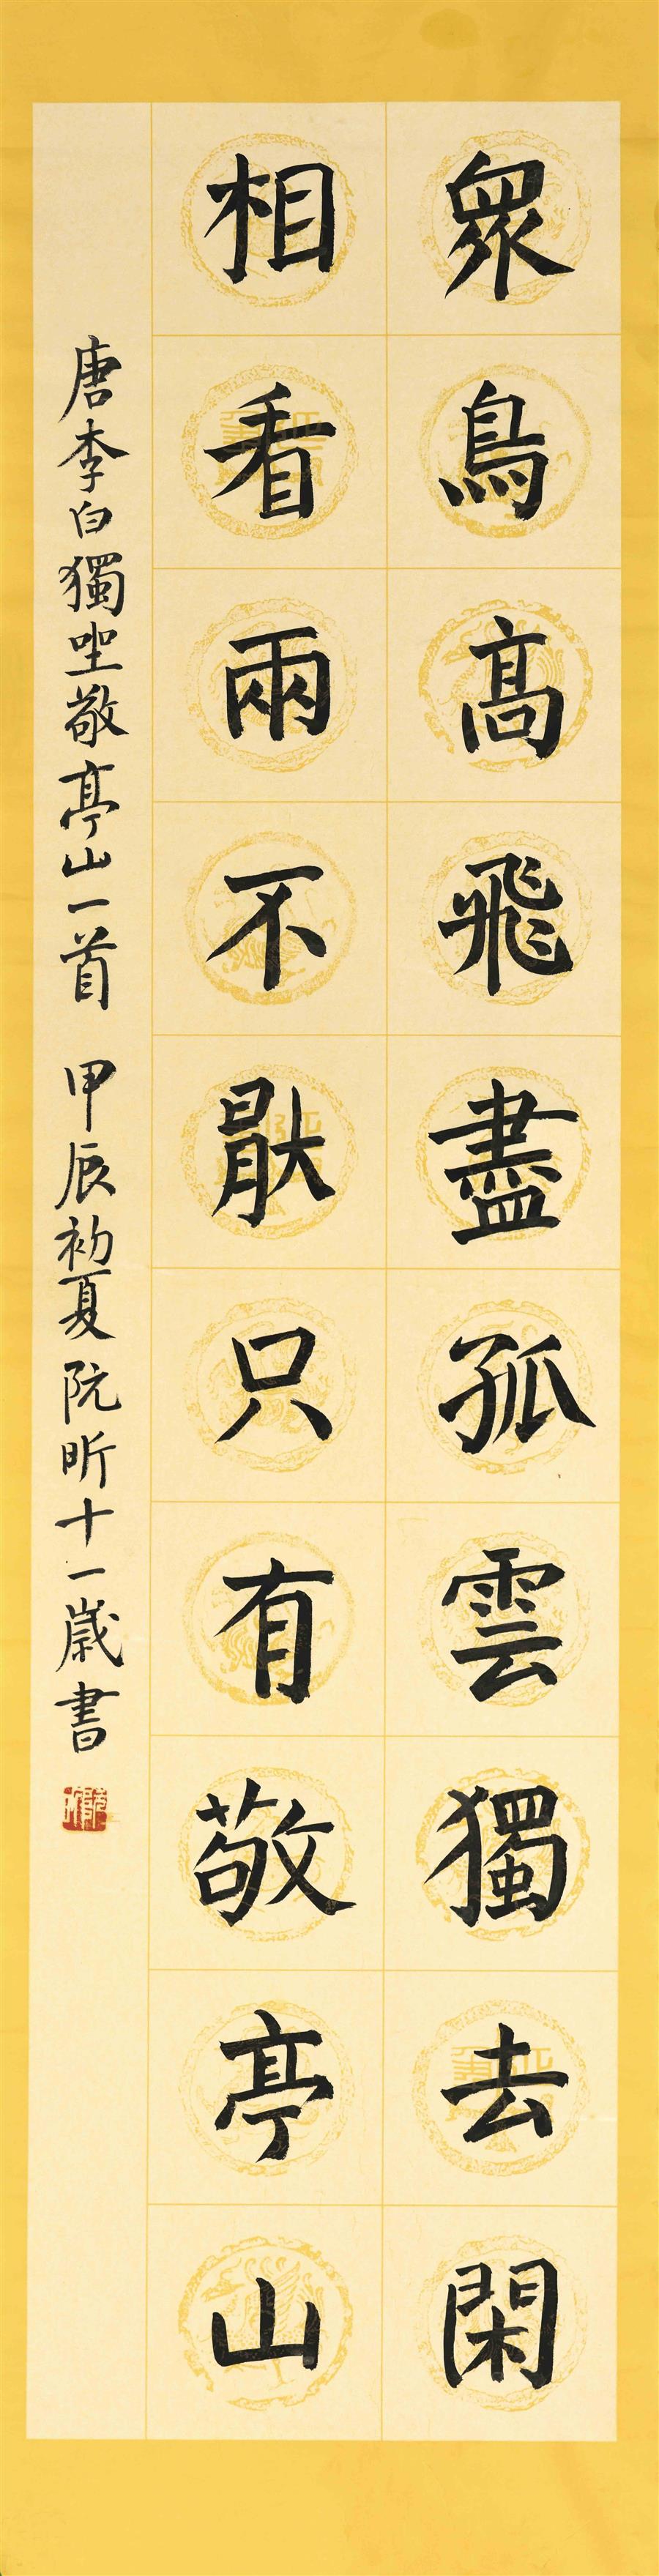 衆鳥高飛盡孤雲獨去閑
相看兩不猒只有敬亭山
唐李白獨坐敬亭山一首 甲辰初夏阮昕十一歲書